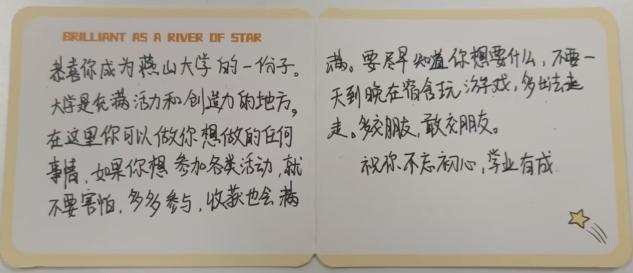 BRILLIANT AS A RIVER OF STAR
恭喜你成为燕山大学的一份子。
大学是充满活力和创造力的地方,
在这里你可以做你想做的任何
事情,如果你想参加各类活动,就
不要害怕,多多参与,收获也会满
满。要尽早知道你想要什么,不要一
天到晚在宿舍玩游戏,多出去走
走。多交朋友,敢交朋友。
祝你不忘初心,学业有成